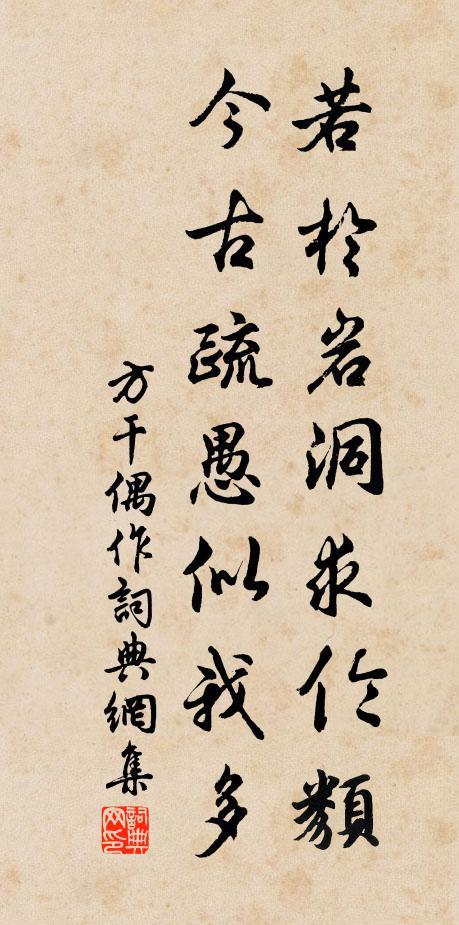 若於岩洞求伦類
今古疏愚似我多
方干偶作詞典網集
詞典网印